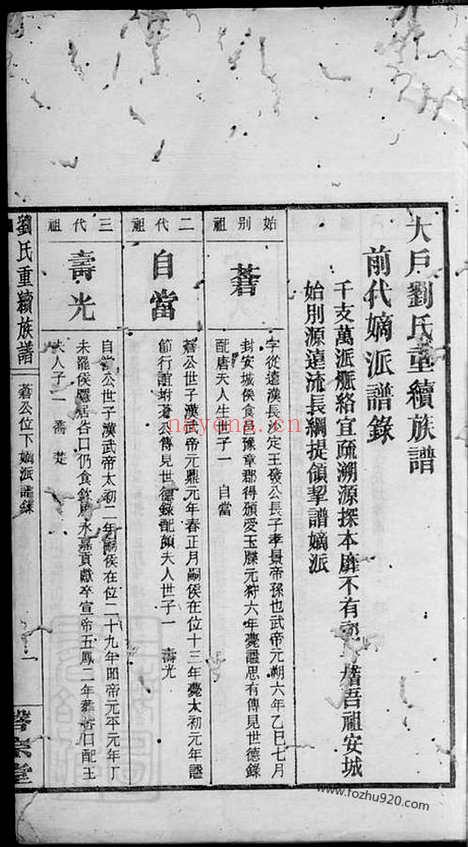 大戶劉氏重續族譜
前代嫡派譜錄
千支萬派脈絡宜疏溯源探本靡不有 稽吾祖安城
始別源遠流長綱提領挈譜嫡派
始別祖
蒼
字從遠漢長沙定王發公長子孝景帝孫也武帝元朔六年乙巳七月
封安城侯食邑豫章郡得頒愛玉牒元狩六年薨諡思有傳見世德錄
配唐夫人生世子一 自當
二代祖
自當
蒼公世子漢武帝元鼎元年春正月嗣侯在位十三年薨太初元年諡
節行誼坿蒼公傳見世德錄配顏夫人世子一 壽光
三代祖
壽光
自當公世子漢武帝太初二年嗣侯在位二十九年昭帝元平元年丁
未罷侯隱居 口仍食 永嘉貢獻卒宣帝五鳳二年葬 口配王
夫人子二 喬 楚
劉氏重續族譜
蒼公位下嫡派譜錄
一
堂
nayona.cn
www.fozhu920.com